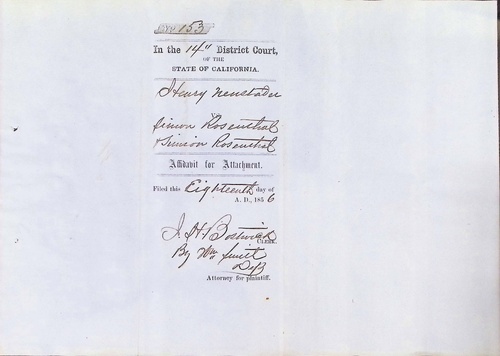 No 153
In the 14" District Court,
OF THE
STATE OF CALIFORNIA.
Henry Neustader
Simon Rosenthal
& Simion Rosenthal
Affidavit for Attachment.
Filed this Eighteenth day of
A. D., 1856
J. H. Bostwick
CLERK.
By Wm Smith
Dep
Attorney for plaintiff.